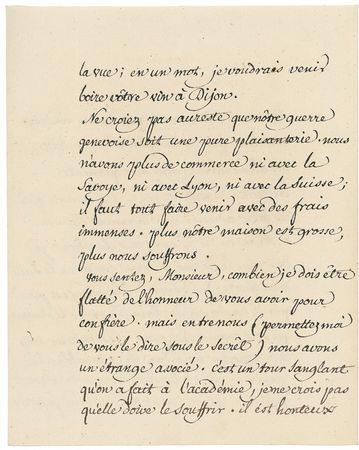 la vue; en un mot, je voudrais venir
boire vôtre vin à Dijon.
Ne croiez pas aureste que nôtre guerre
genevoise soit une pure plaisanterie. nous
n'avons plus de commerce ni avec la
Savoye, ni avec Lyon, ni avec la Suisse;
il faut tout faire venir avec des frais
immenses. plus nôtre maison est grosse,
plus nous souffrons.
Vous sentez, Monsieur, combien je dois être
flatté de l'honneur de vous avoir pour
confrère. mais entre nous (permettez moi
de vous le dire sous le secrêt) nous avons
un étrange associé. c'est un tour sanglant
qu'on a fait à l'académie, je ne crois pas
qu'elle doive le souffrir. il est honteux